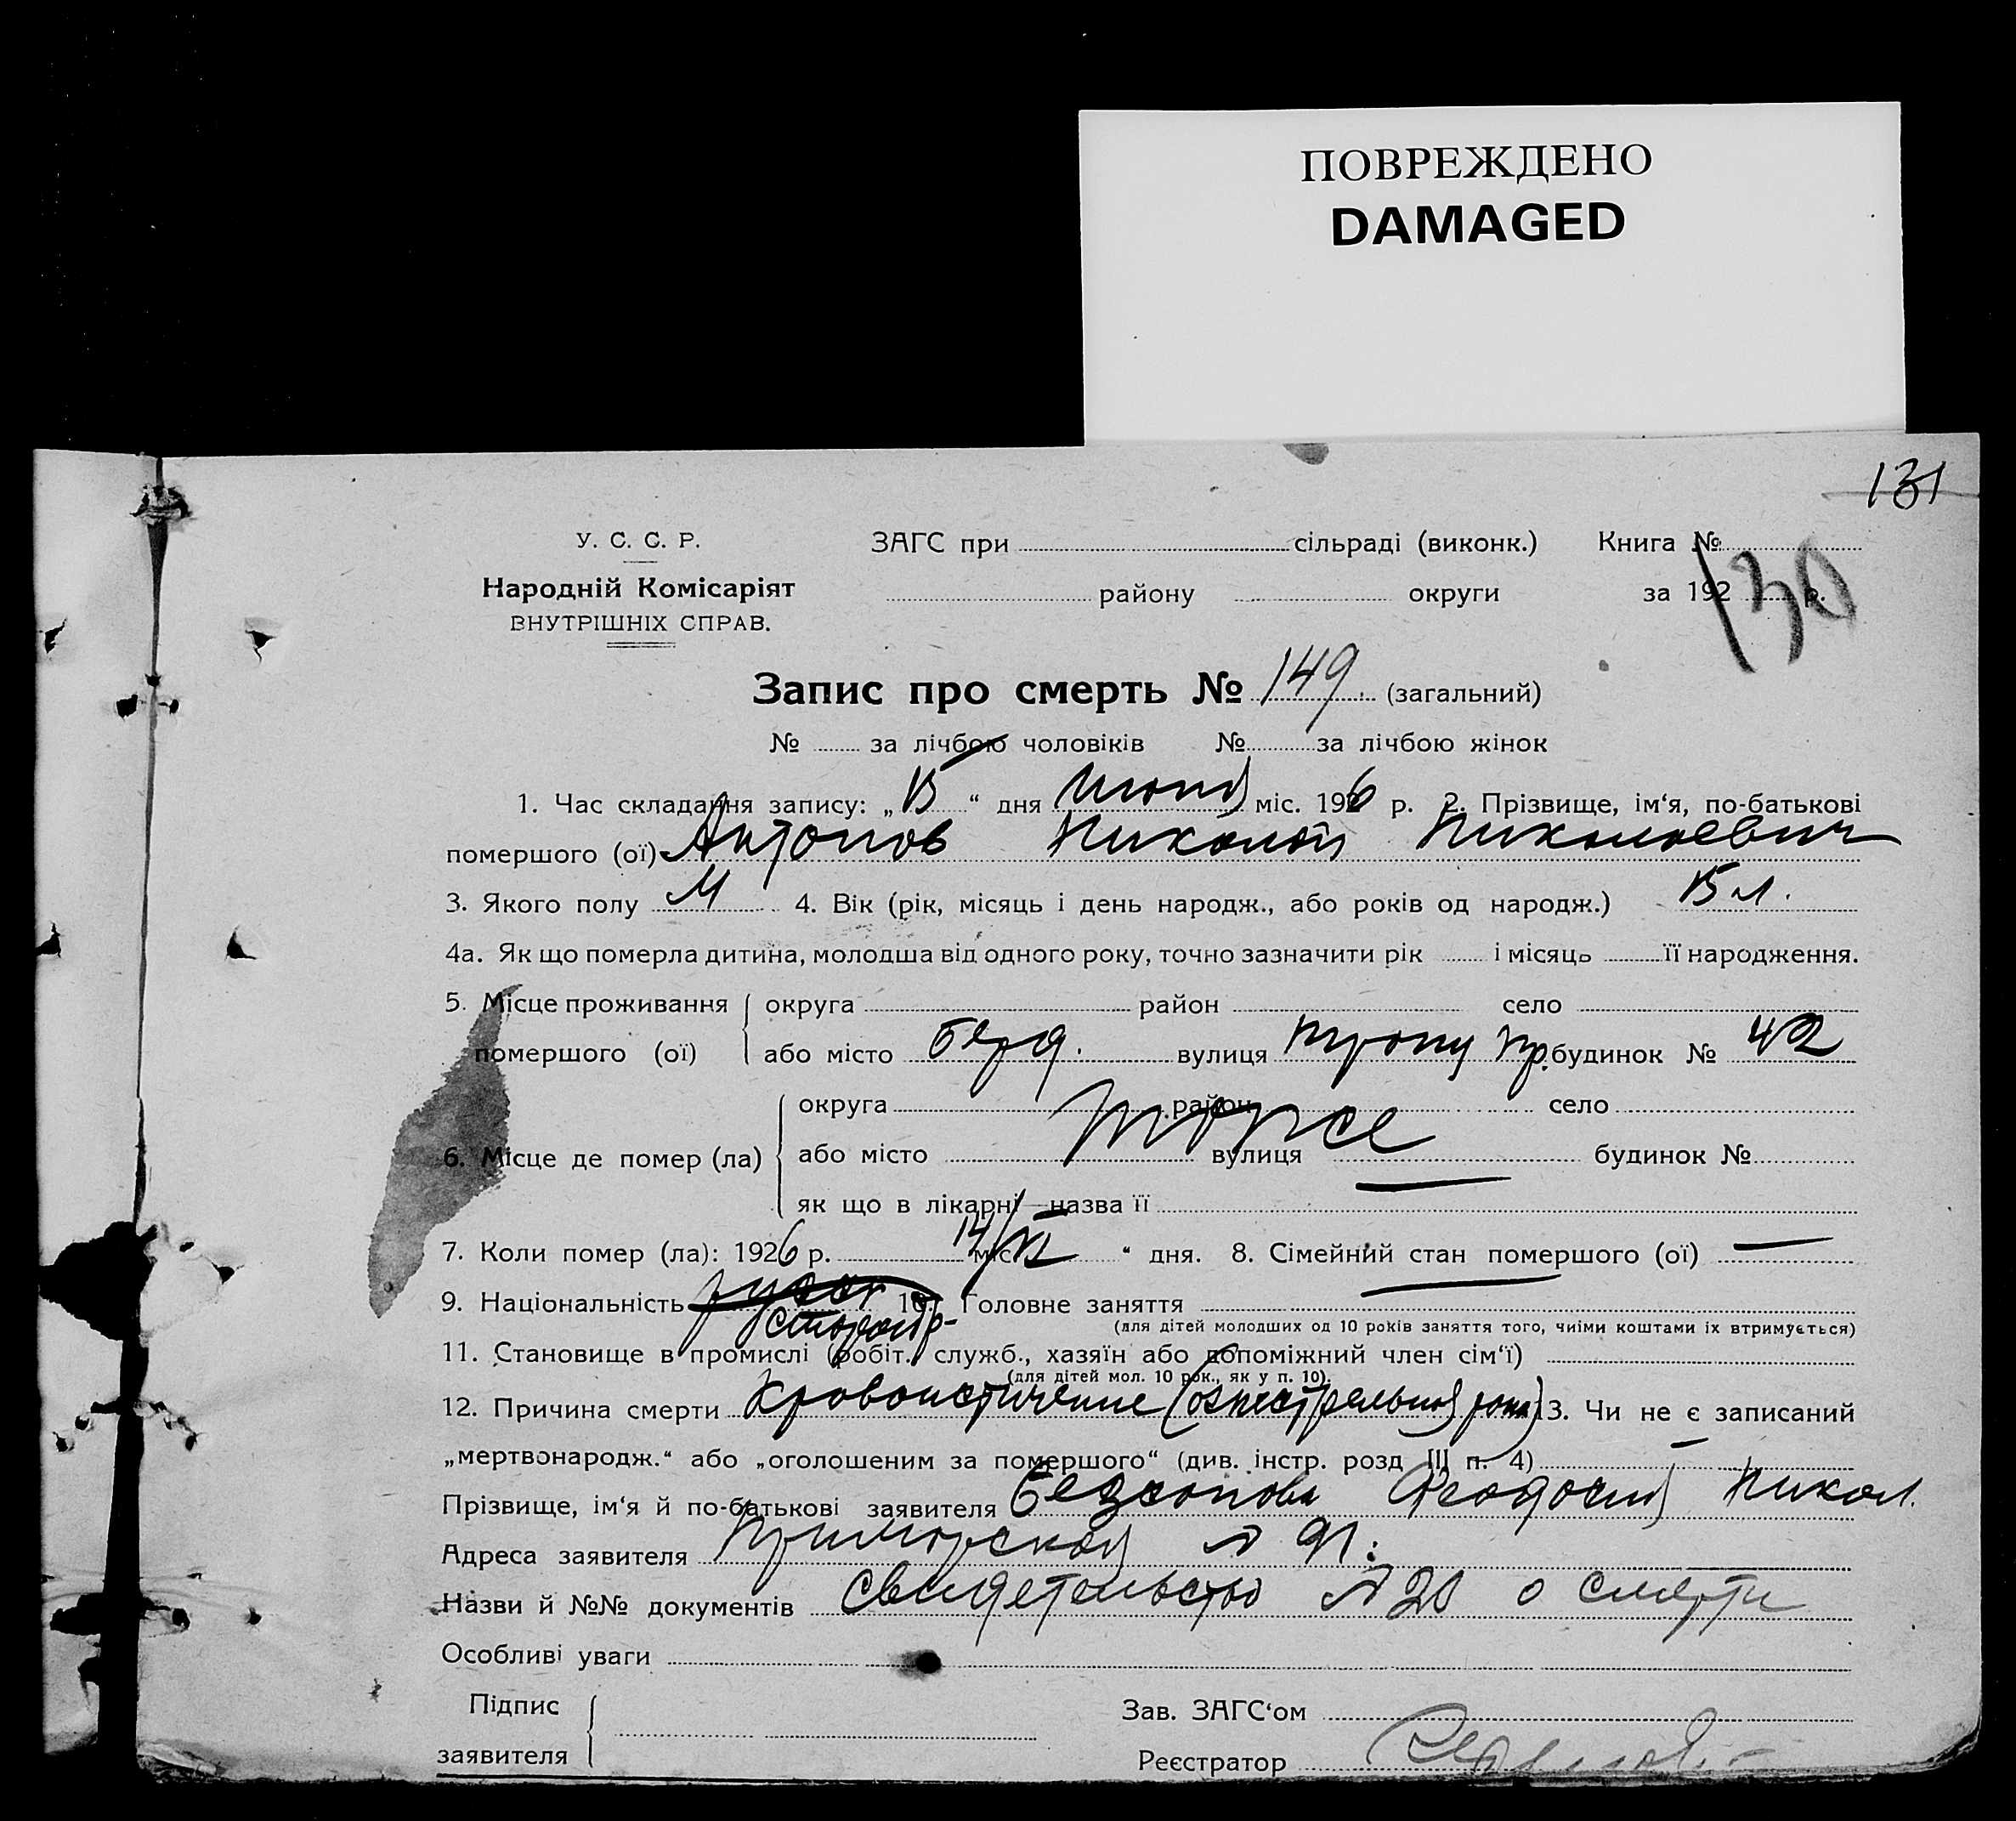 ПОВРЕЖДЕНО
DAMAGED
131
У. С. С. Р.
ЗАГС при сільраді (виконк.) Книга №
130
Народній Комісаріят
району округи за 192 р.
ВНУТРІШНІХ СПРАВ.
Запис про смерть № 149. (загальний)
№ за лічбою чоловіків № за лічбою жінок
1. Час складання запису: „15“ дня Июня міс. 1926 р. 2. Прізвище, ім‘я, по-батькові
помершого (ої) Антонов Николай Николаевич
3. Якого полу М 4. Вік (рік, місяць і день народж., або років од народж.) 15 л.
4а. Як що померла дитина, молодша від одного року, точно зазначити рік і місяць її народження.
5. Місце проживання округа район село
помершого (ої) або місто Берд. вулиця пр. будинок № 42
округа район село
6. Місце де помер (ла) або місто вулиця будинок №
Тоже
як що в лікарні—назва її
7. Коли помер (ла): 1926 р. 14/VI міс. “ дня. 8. Сімейний стан помершого (ої) —
9. Національність русск 10. Головне заняття —
(для дітей молодших од 10 років заняття того, чиїми коштами їх втримується)
11. Становище в промислі (робіт., служб., хазяїн або допоміжний член сім‘ї)
(для дітей мол. 10 рок., як у п. 10).
12. Причина смерти Кровоистичение (огнестрельная рана) 13. Чи не є записаний
„мертвонародж.“ або „оголошеним за помершого“ (див. інстр. розд III п. 4) —
Прізвище, ім‘я й по-батькові заявителя Феодосия Никол.
Адреса заявителя Приморская № 91.
Назви й №№ документів Свидетельство № 20 о смерти
Особливі уваги
Підпис
заявителя
Зав. ЗАГС‘ом
Реєстратор